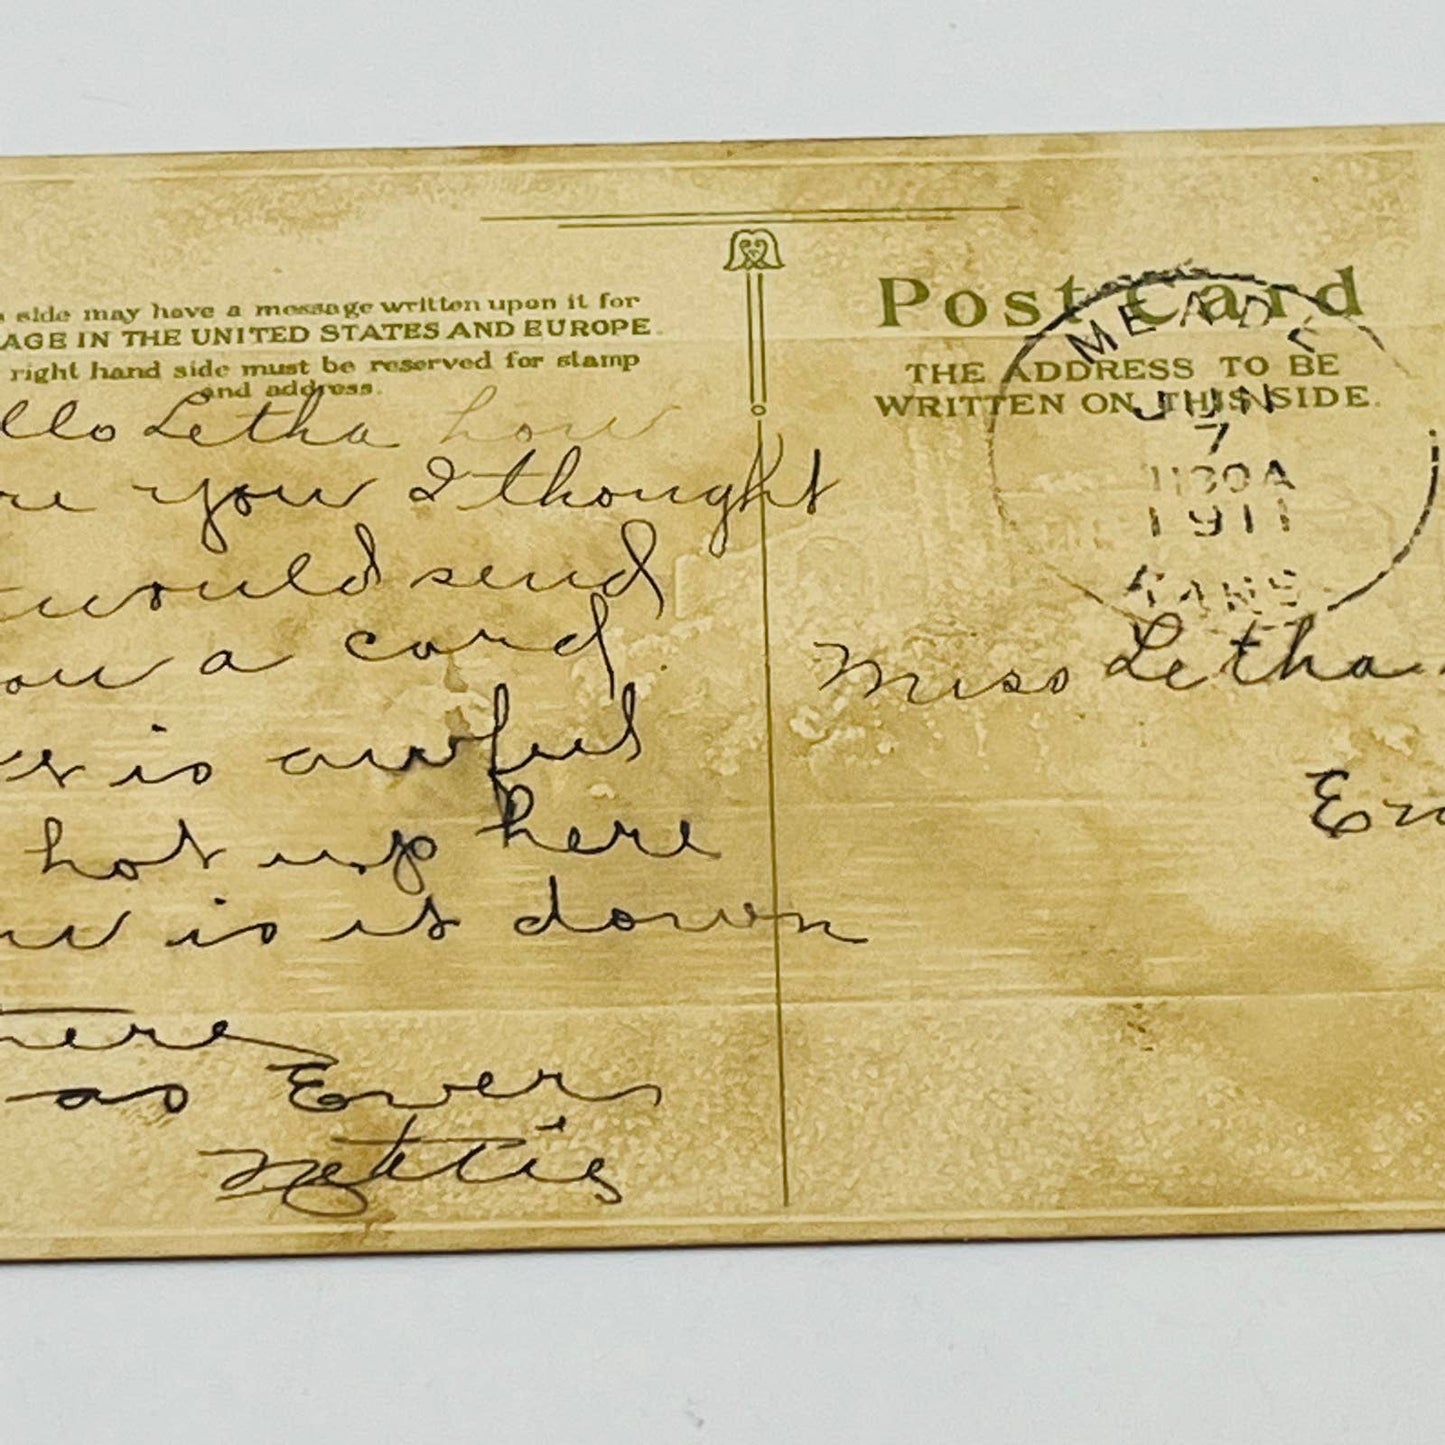 side may have a message written upon it for
AGE IN THE UNITED STATES AND EUROPE.
right hand side must be reserved for stamp
and address.
llo Letha how
re you I thought
would send
ou a card
is awful
hot up here
w is it down
here
as Ever
Nettie
Post Card
THE ADDRESS TO BE
WRITTEN ON THIS SIDE.
MEADE
JUN
7
1130A
1911
KANS
Miss Letha